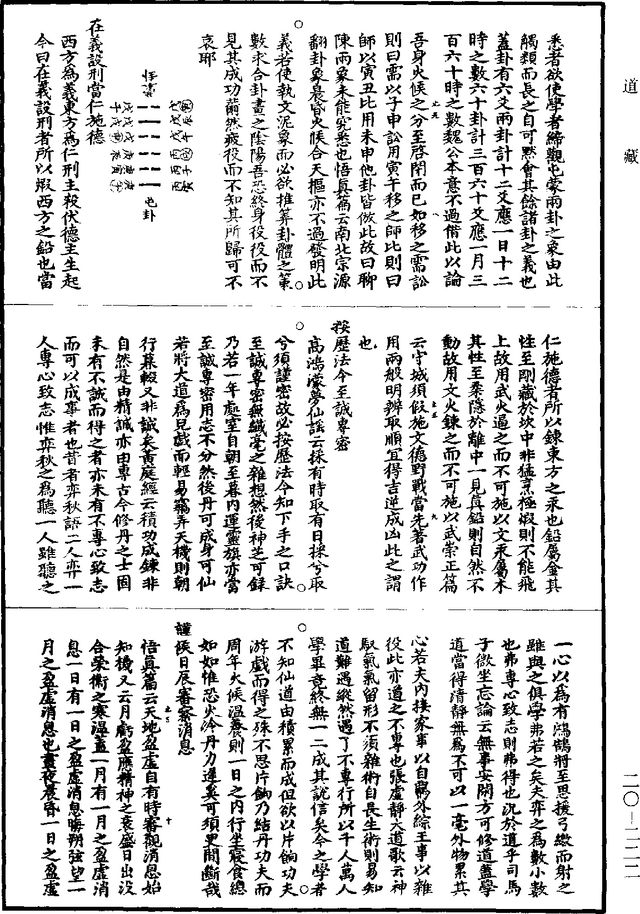 道藏
悉者欲使學者締觀屯蒙兩卦之象由此
觸類而長之自可默會其餘諸卦之義也
蓋卦有六爻兩卦計十二爻應一日十二
時之數六十卦計三百六十爻應一月三
百六十時之數魏公本意不過借此以論
吾身火候之分至啓閉而已如移之需訟
則曰需以子申訟用寅午移之師比則曰
師以寅丑比用未申他卦皆倣此故曰聊
陳兩象未能究悉也悟真篇云南北宗源
翻卦象晨昏火候合天樞亦不過發明此
義若使執文泥象而必欲推算卦體之策
數求合卦畫之陰陽吾恐終身役役而不
見其成功薾然疲役而不知其所歸可不
哀耶
屯卦
在義設刑當仁施德
西方為義東方為仁刑主殺伐德主生起
今曰在義設刑者所以煅西方之鉛也當
仁施德者所以鍊東方之汞也鉛屬金其
性至剛藏於坎中非猛烹極煅則不能飛
上故用武火逼之而不可施以文汞屬木
其性至柔隱於離中一見真鉛則自然不
動故用文火鍊之而不可施以武崇正篇
云守城須假施文德野戰當先著武功作
用兩般明辨取順宜得吉逆成凶此之謂
也
按曆法令至誠專密
高鴻濛夢仙謠云採有時取有日採兮取
兮須謹密故必按曆法令知下手之口訣
至誠專密無纖毫之雜想然後神芝可錄
乃若一年處室自朝至暮內運靈旗亦當
至誠專密用志不分然後丹可成身可仙
若將大道為兒戲而輕易竊弄天機則朝
行暮輟又非誠矣黃庭經云積功成鍊非
自然是由精誠亦由專古今修丹之士固
未有不誠而得之者亦未有不專心致志
而可以成事者也昔者弈秋誨二人弈一
人專心致志惟弈秋之為聽一人雖聽之
一心以為有鴻鵠將至思援弓繳而射之
雖與之俱學弗若之矣夫弈之為數小數
也弗專心致志則弗得也況於道乎司馬
子微坐忘論云無事安閑方可修道蓋學
道當得清靜無為不可以一毫外物累其
心若夫內接家事以自羈外綜王事以雜
役此亦道之不專也張虛靜大道歌云神
馭氣氣留形不須雜術自長生術則易知
道難遇縱然遇了不專行所以千人萬人
學畢竟終無一二成其說信矣今之學者
不知仙道由積累而成但欲以片餉功夫
游戲而得之殊不思片餉乃結丹功夫而
周年火候溫養則一日之內行坐寢食總
如如惟恐火冷丹力遲奚可須臾間斷哉
謹候日辰審察消息
悟真篇云天地盈虛自有時審觀消息始
知機又云月虧盈應精神之衰盛日出沒
合榮衛之寒溫蓋一月有一月之盈虛消
息一日有一日之盈虛消息晦朔弦望一
月之盈虛消息也晝夜晨昏一日之盈虛